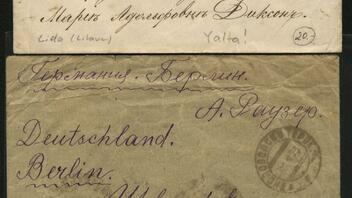 Маріи Адольфовнѣ Диксонъ.
Lida (Litauen)
Yalta!
20.-
Германия. Берлин.
А. Раузер.
Deutschland.
Berlin.